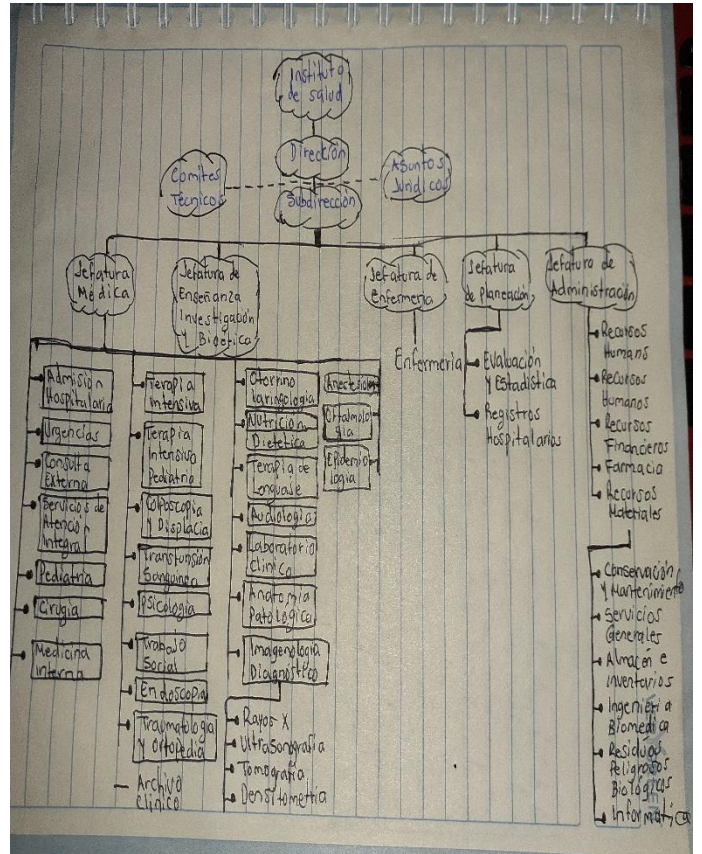 Instituto
de salud
Dirección
Comites
Técnicos
Asuntos
Jurídicos
Subdirección
Jefatura
Médica
Jefatura de
Enseñanza
Investigación
Y Bioética
Jefatura de
Enfermeria
Jefatura
de Planeación
Jefatura de
Administración
Admisión
Hospitalaria
Urgencias
Consulta
Externa
Servicios de
Atención
Integral
Pediatria
Cirugia
Medicina
interna
Terapia
Intensiva
Terapia
Intensiva
Pediatria
Colposcopia
Y Displacia
Transfunsión
Sanguinea
Psicologia
Trabajo
Social
Endoscopia
Traumatologia
Y Ortopedia
Archivo
Clinico
Otorrino
laringologia
Nutrición
Dietetica
Terapia de
Lenguaje
Audiologia
Laboratorio
Clinico
Anatomia
Patologica
Imagenologia
Diagnostico
Rayos X
Ultrasonografia
Tomografia
Densitometria
Oftalmolo
gia
Epidemio
logia
Enfermeria
Evaluación
Y Estadistica
Registros
Hospitalarios
Recursos
Humans
Recursos
Humanos
Recursos
Financieros
Farmacia
Recursos
Materiales
Conservación
Y Mantenimiento
Servicios
Generales
Almacén e
inventarios
Ingenieria
Biomedica
Residuos
Peligrosos
Biológicos
Informatica